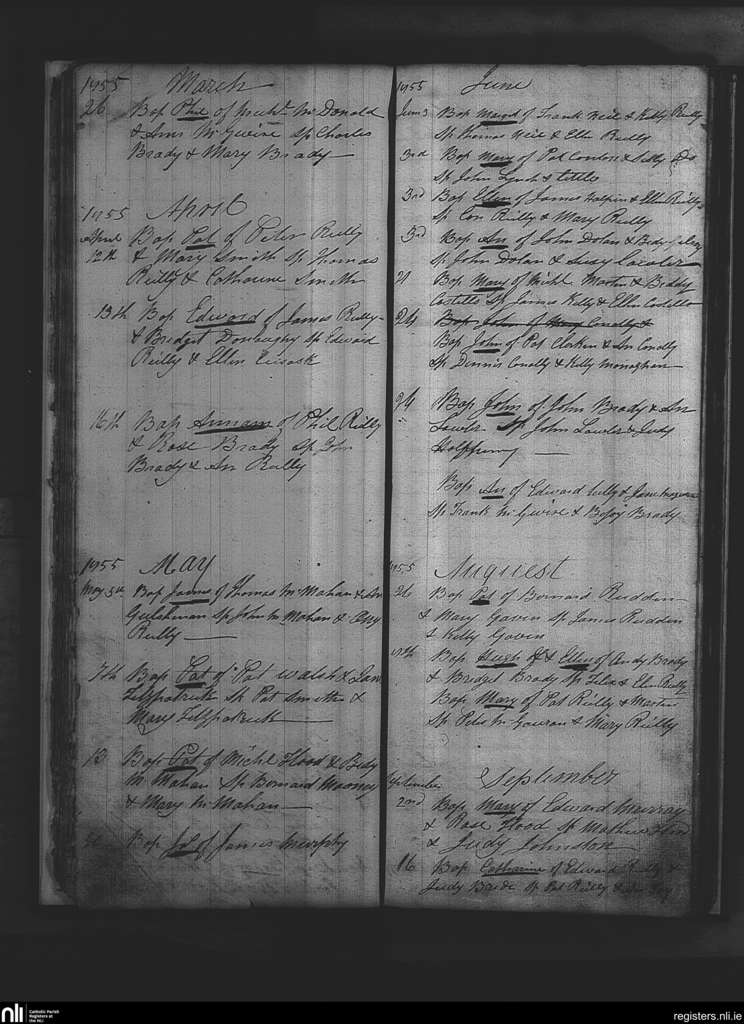 1855 March
26 Bap Phil of Michl McDonald
& Ann McGwire Sp Charles
Brady & Mary Brady
1855 April
April 12th Bap Pat of Peter Reilly
& Mary Smith Sp Thomas
Reilly & Catharine Smith
13th Bap Edward of James Reilly
& Bridget Sp Edward
Reilly & Ellen
16th Bap of Phil Reilly
& Rose Brady Sp John
Brady & An Reilly
1855 May
May 5th Bap James of Thomas McMahan & An
Sp John McMahan &
Reilly
7th Bap Pat of Pat Walsh & Jan
Fitzpatrick Sp Pat Smith &
Mary Fitzpatrick
13 Bap Pat of Michl Flood & Bidy
McMahan Sp Bernard Mooney
& Mary McMahan
Bap of James Murphy
1855 June
June 3 Bap Margt of Frank Neil & Kitty Reilly
Sp Thomas Neil & Ellen Reilly
3rd Bap Mary of Pat Condon &
Sp John Lynch &
3rd Bap Ellen of James Halpin & Ellen Reilly
Sp Con Reilly & Mary Reilly
3rd Bap An of John Dolan & Bidy
Sp John Dolan & Judy
21 Bap Mary of Michl Martin & Biddy
Costello Sp James Kelly & Ellen Costello
24 Bap John of Mary Conally &
Bap John of Pat Clerkin & An Conally
Sp Dennis Conally & Kitty Monaghan
24 Bap John of John Brady & An
Lawler Sp John Lawler & Judy
Bap An of Edward & Jane
Sp Frank McGwire & Brady
1855 Auguest
26 Bap Pat of Bernard Rudden
& Mary Gavin Sp James Rudden
& Kitty Gavin
Bap Hugh & Ellen of Andy Brady
& Bridget Brady Sp & Elen Reilly
Bap Mary of Pat Reilly &
Sp Peter McGouran & Mary Reilly
September
September 2nd Bap Mary of Edward Murray
& Rose Flood Sp Mathew Flood
& Judy Johnston
16 Bap Catharine of Edward Reilly &
Judy Sp Pat Reilly &
nli
Catholic Parish
Registers at
the NLI
registers.nli.ie